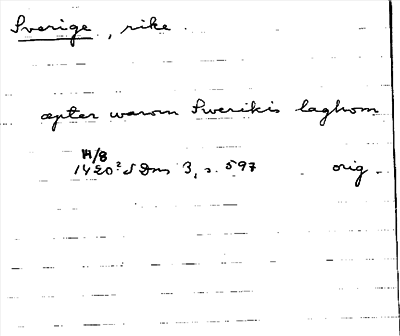 Sverige, rike.
æpter warom Swerikis laghom
14/8
1420 SDns 3, s. 597 orig.